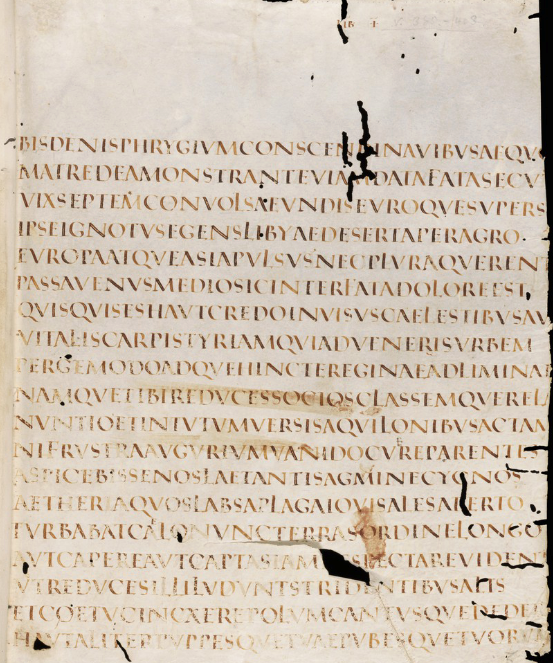 BISDENISPHRYGIVMCONSCENDINAVIBVSAEQVO
MATREDEAMONSTRANTEVIAMDATAFATASECV
VIXSEPTEMCONVOLSAEVNDISEVROQVESVPERS
IPSEIGNOTVSEGENSLIBYAEDESERTAPERAGRO
EVROPAATQVEASIAPVLSVSNECPLVRAQVERENT
PASSAVENVSMEDIOSICINTERFATADOLOREEST
QVISQVISESHAVTCREDOINVISVSCAELESTIBVSAV
VITALISCARPISTYRIAMQVIADVENERISVRBEM
PERGEMODOADQVEHINCTEREGINAEADLIMINA
NAMQVETIBIREDVCESSOCIOSCLASSEMQVERELA
NVNTIOETINTVTVMVERSISAQVILONIBVSACTAM
NIFRVSTRAAVGVRIVMVANIDOCVREPARENTES
ASPICEBISSENOSLAETANTISAGMINECYCNOS
AETHERIAQVOSLABSAPLAGAIOVISALESAPERTO
TVRBABAICALONVNCTERRASORDINELONGO
AVTCAPEREAVTCAPTASIAMDESPECTAREVIDENT
VTREDVCESILLILVDVNTSTRIDENTIBVSALIS
ETCOETVCINCXEREPOLVMCANTVSQVEDEDE
HAVTALITERPVPPESQVETVAEPVBESQVETVORVM